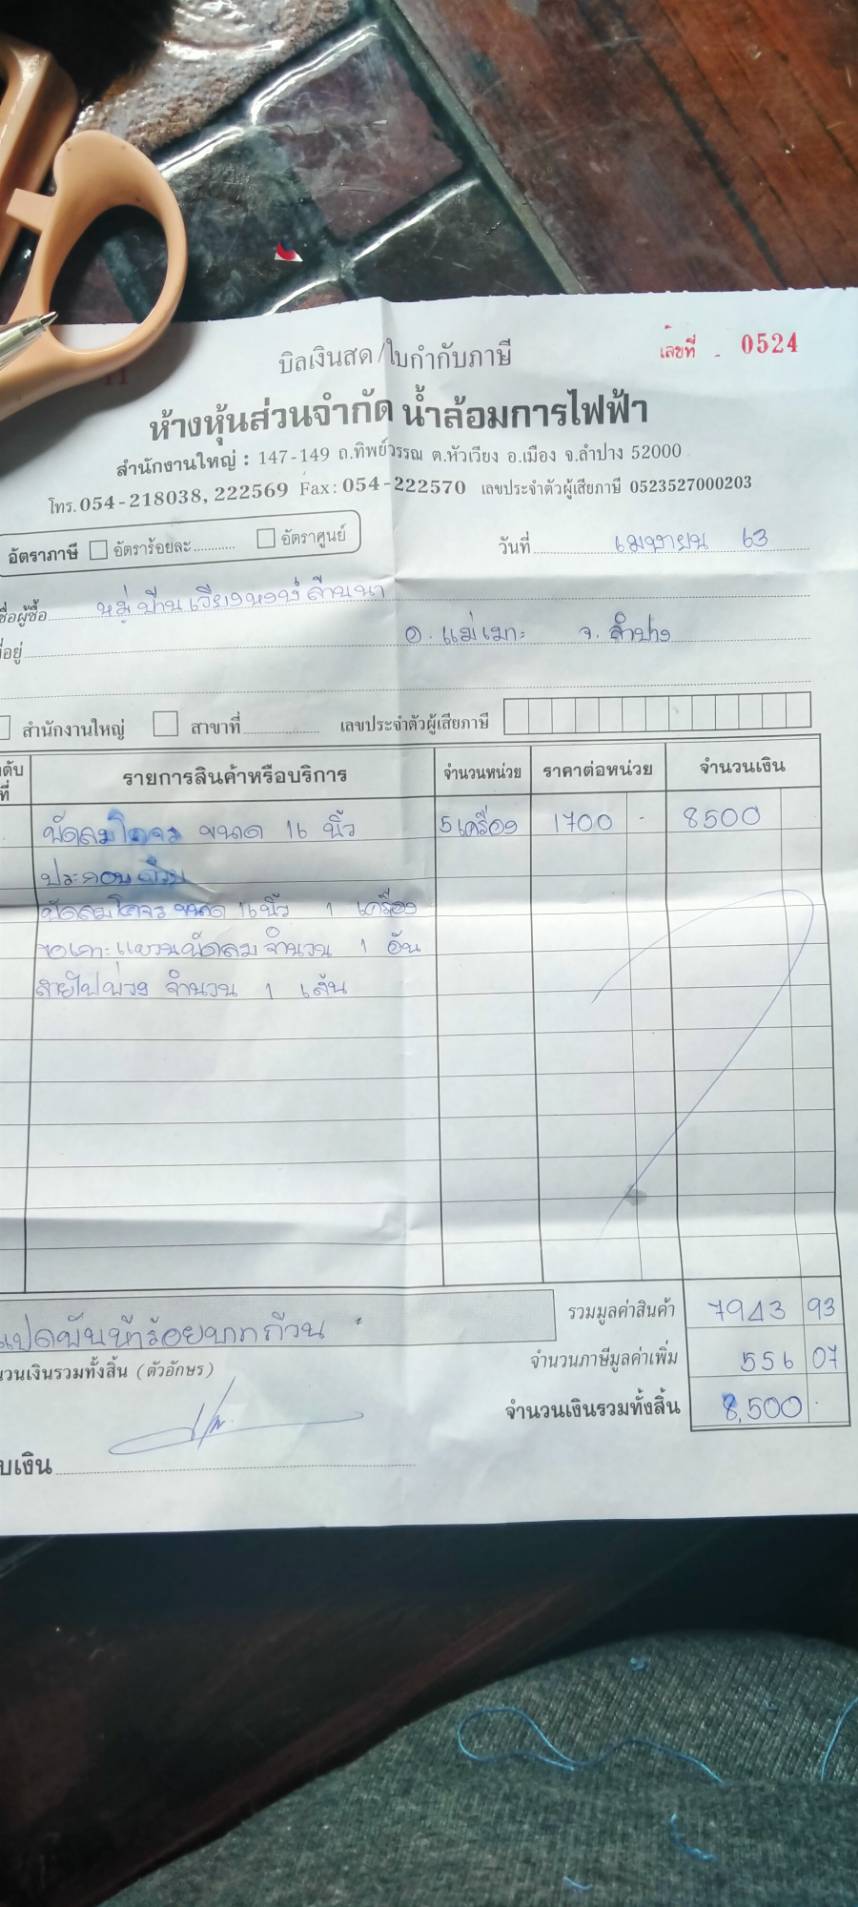 บิลเงินสด/ใบกำกับภาษี
เลขที่ - 0524
ห้างหุ้นส่วนจำกัด น้ำล้อมการไฟฟ้า
สำนักงานใหญ่ : 147-149 ถ.ทิพย์วรรณ ต.หัวเวียง อ.เมือง จ.ลำปาง 52000
โทร. 054-218038, 222569 Fax: 054-222570 เลขประจำตัวผู้เสียภาษี 0523527000203
อัตราภาษี อัตราร้อยละ อัตราศูนย์
วันที่ เมษายน 63
ชื่อผู้ซื้อ หมู่บ้านเวียงหงษ์ล้านนา
ที่อยู่ อ.แม่เมาะ จ.ลำปาง
สำนักงานใหญ่ สาขาที่ เลขประจำตัวผู้เสียภาษี
ลำดับที่ รายการสินค้าหรือบริการ จำนวนหน่วย ราคาต่อหน่วย จำนวนเงิน
พัดลมโคจร ขนาด 16 นิ้ว 5 เครื่อง 1700 - 8500
ประกอบด้วย
พัดลมโคจร ขนาด 16 นิ้ว 1 เครื่อง
ขอเกาะแขวนพัดลม จำนวน 1 อัน
สายไฟพ่วง จำนวน 1 เส้น
รวมมูลค่าสินค้า 7943 93
แปดพันห้าร้อยบาทถ้วน
จำนวนภาษีมูลค่าเพิ่ม 556 07
จำนวนเงินรวมทั้งสิ้น (ตัวอักษร)
จำนวนเงินรวมทั้งสิ้น 8,500 -
รับเงิน